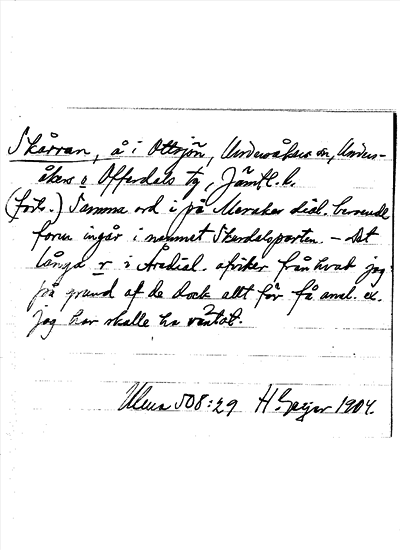 Skårran, å i Ottsjön, Undersåkers sn, Under-
såkers o Offerdals tg, Jämtl. l.
(forts.) Samma ord i på Meraker dial. beroende
form ingår i namnet Skurdalsporten. – Det
långa r i Åredial. afviker från hvad jag
på grund af de dock allt för få anal. ex.
jag har skulle ha väntat.
Ulma 508:29 H Geijer 1904.